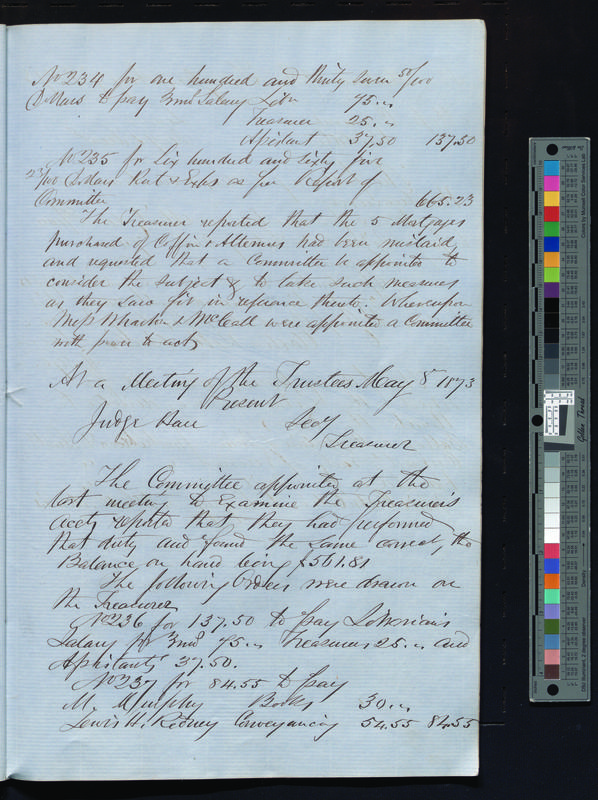 No 234 for one hundred and thirty seven 50/100
Dollars to pay 3 mos Salary Libn 75.00
Treasurer 25.00
Assistant 37.50 137.50
No 235 for Six hundred and sixty five
23/100 Dollars Rent & Exps as per Report of
Committee 665.23
The Treasurer reported that the 5 Mortgages
purchased of Coffin & Altemus had been mislaid,
and requested that a Committee be appointed to
consider the subject & to take such measures
as they saw fit in reference thereto. Whereupon
Mess Wharton & McCall were appointed a Committee
with power to act
At a Meeting of the Trustees May 8 1873
Present
Judge Hare Secy
Treasurer
The Committee appointed at the
last meeting to Examine the Treasurer's
accts reported that they had performed
that duty and found the same correct, the
Balance on hand being $561.81
The following Orders were drawn on
the Treasurer
No 236 for 137.50 to pay Librarian's
Salary for 3 mos 75.00 Treasurer 25.00 and
Assistants' 37.50.
No 237 for 84.55 to pay
M. Murphy Books 30.00
Lewis H. Conveyancing 54.55 84.55